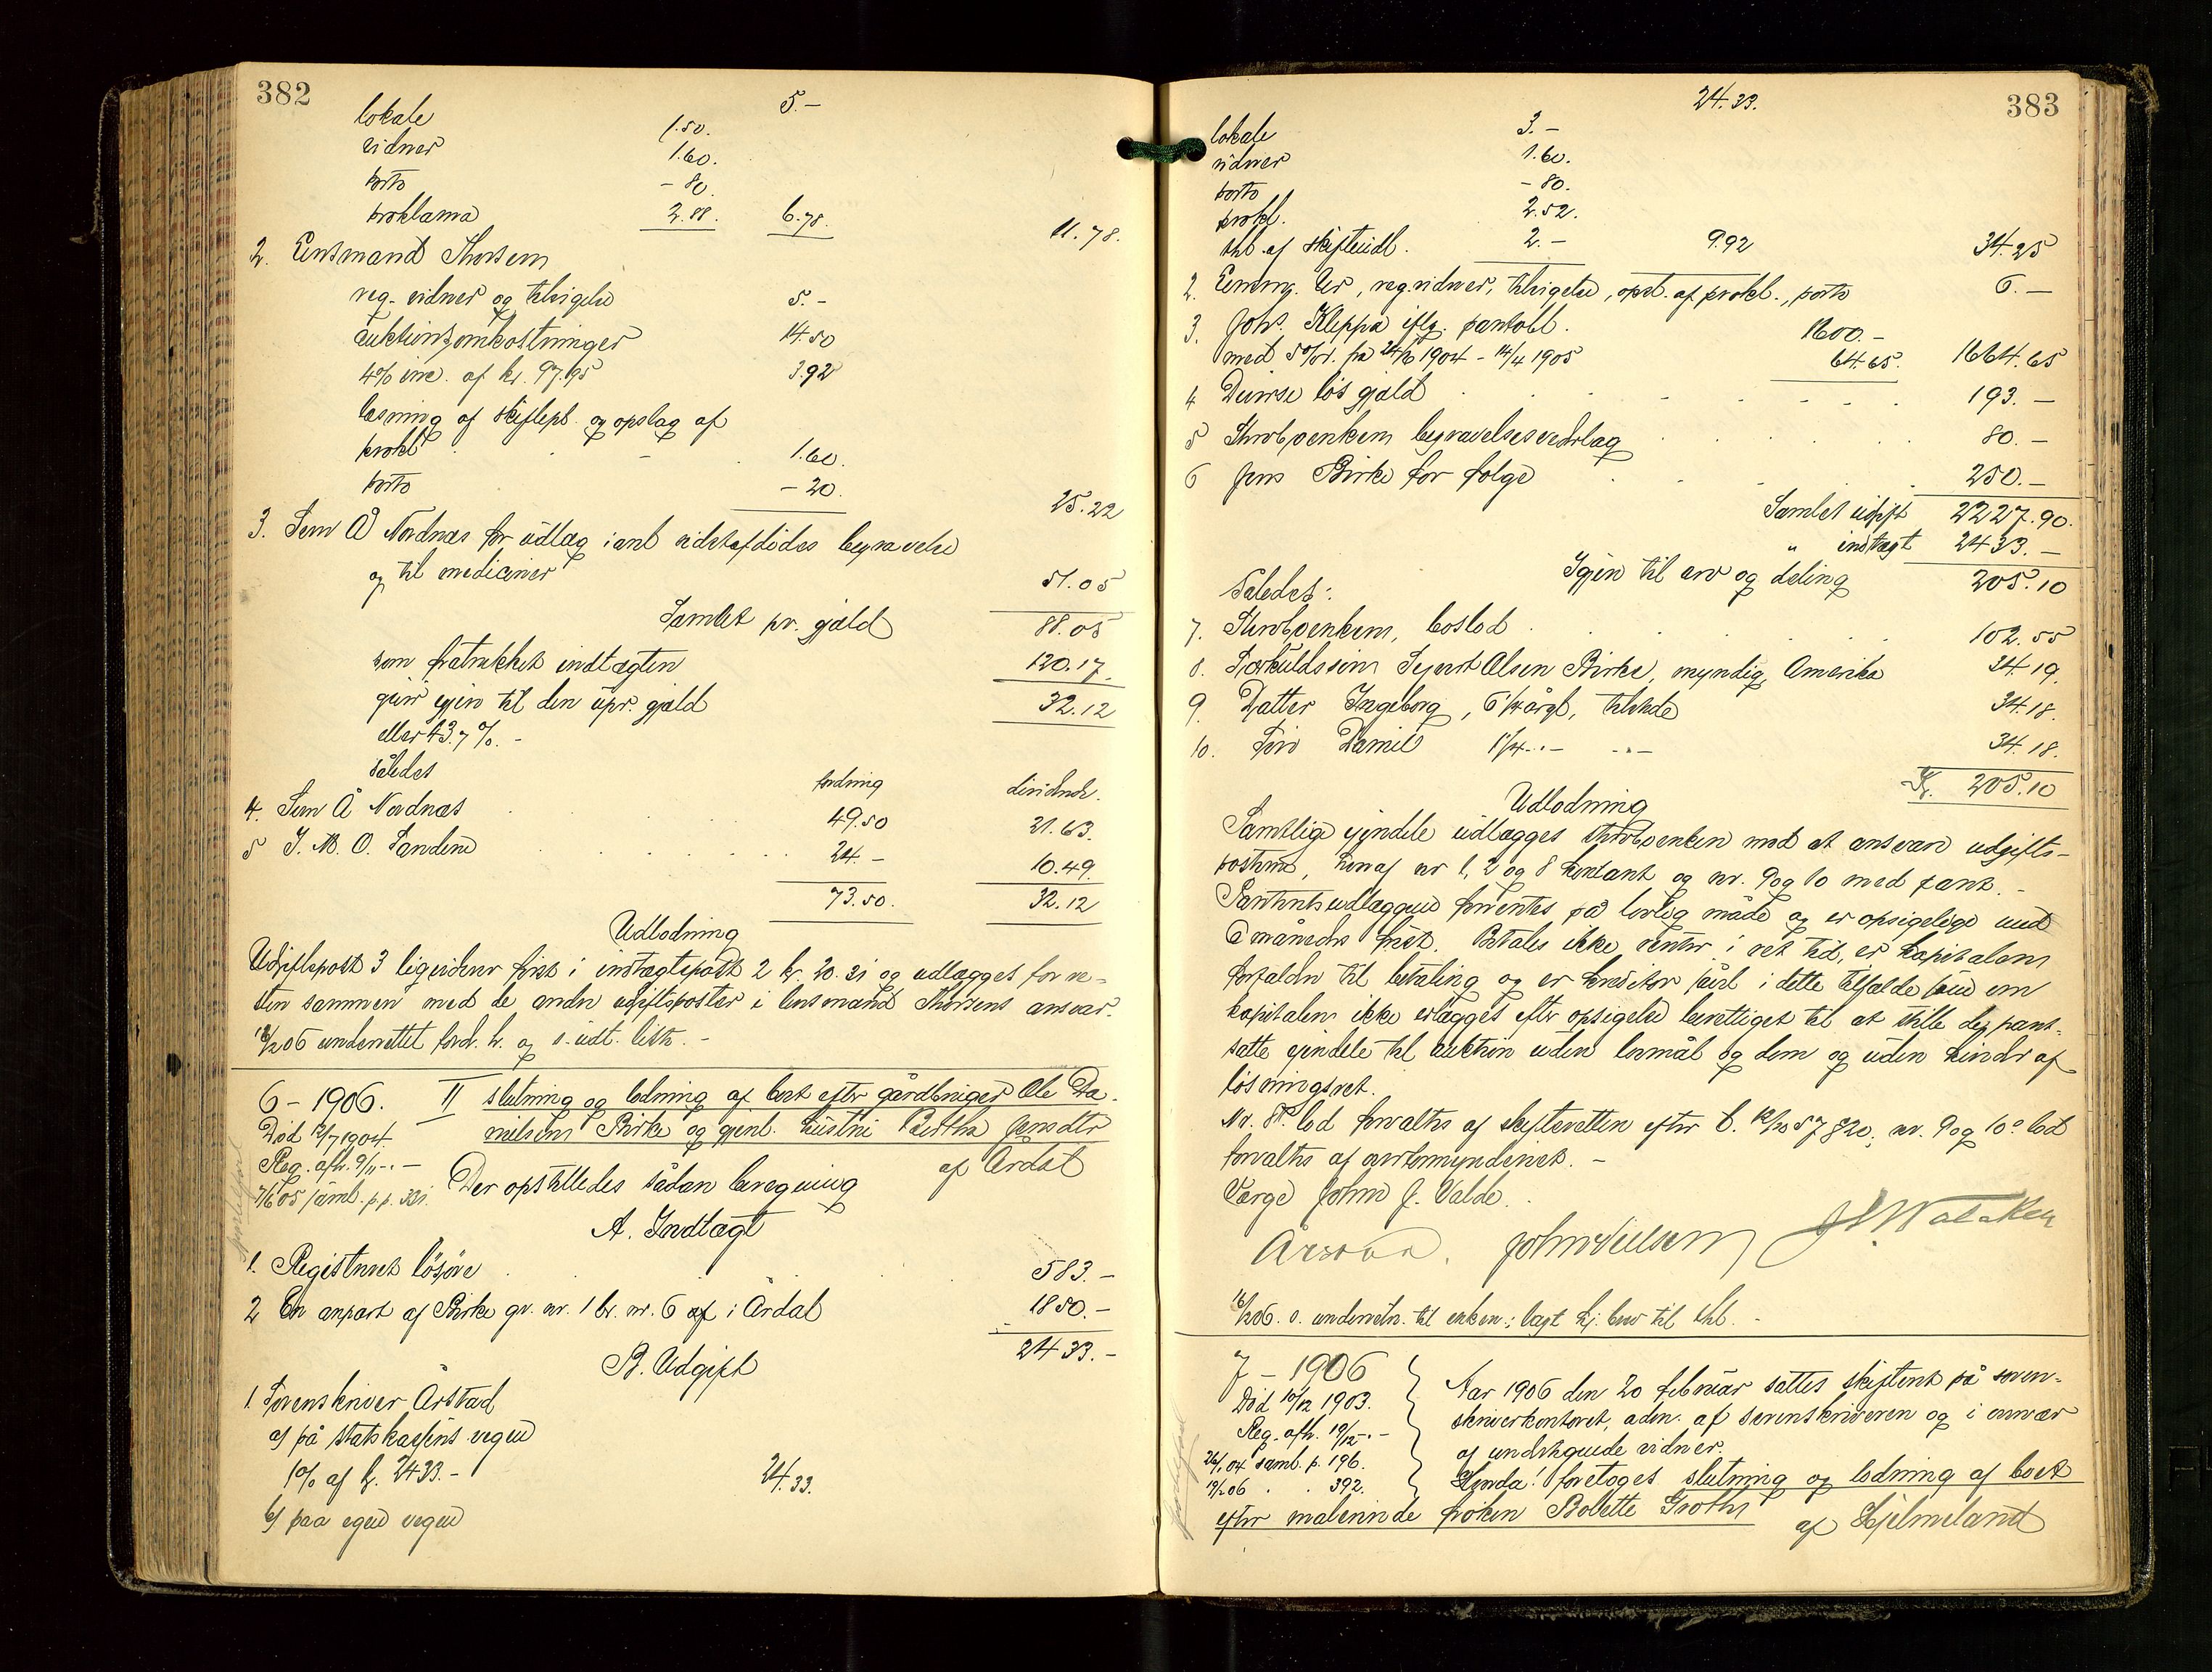 382
5.-
lokale 1.50.
vidner 1.60.
porto - 80.
proklama 2.88. 6.78. 11.78.
2. Lensmand Thorsen
reg. vidner og tilsigelse 5.-
auktionsomkostninger 14.50
4% ink. af kr. 97.95 3.92
læsning af skiftepl. og opslag af
prokl. 1.60.
porto - 20. 25.22
3. Sem Å Nordnæs for udlæg i anl sidstafdødes begravelse
og til mediciner 51.05
Samlet pr. gjæld 88.05
som fratrukket indtægten 120.17.
gjør igjen til den upr. gjæld 32.12
eller 43.7 %. -
således fordring dividende.
4. Sem Å Nordnæs 49.50 21.63.
5 J. M. O. Sandene 24.- 10.49.
73.50. 32.12
Udlodning
Udgiftspost 3 ligviderer først i indtægtspost 2 kr. 20.31 og udlægges for re-
sten sammen med de andre udgiftsposter i lensmand Thorsens ansvar.
16/2 06 underrettet ford. h. og s. udt. liste. -
6 - 1906. II slutning og lodning af boet efter gårdbruger Ole Da-
Død 12/7 1904. nielsen Birke og gjenl. hustru Bertha Jensdtr
Reg. afh. 9/11 -.- af Årdal
7/6 05 samb. p. p. 331. Der opstilledes sådan beregning
A. Indtægt
1. Registreret løsøre 583.-
2 En anpart af Birke gr. nr. 1 br. nr. 6 af i Årdal 1850.-
2433.-
B. Udgift
1. Sorenskriver Årstad
a) på statskassens vegne
1% af kr. 2433.- 24.33.
b) paa egne vegne
383
24.33.
lokale 3.-
vidner 1.60.
porto - 80.
prokl. 2.52.
skl. af skifteudl. 2.- 9.92 34.25
2. Lensm. Ur, reg. vidner, tilsigelse, opsl. af prokl., porto 6.-
3. Johs. Kleppa iflg. pantobl. 1600.-
med 5% r. fra 24/6 1904 - 14/4 1905 64.65. 1664.65
4 Diverse løs gjæld 193.-
5 Skrobøenken begravelsesvederlag 80.-
6 Jens Birke for følge 250.-
Samlet udgift 2227.90.
" indtægt 2433.-
Igjen til arv og deling 205.10
Således:
7. Skrobøenken, boslod 102.55
8. Særkuldssøn Sjurt Olsen Birke, myndig, Amerika 34.19.
9. Datter Ingeborg, 6 1/2 årgl, tilstede 34.18.
10. Søn Daniel 1 1/4 -.- -"- 34.18.
Kr. 205.10
Udlodning
Samtlige eiendele udlægges skrobøenken mod at ansvare udgifts-
posterne, heraf nr 1, 2 og 8 kontant og nr. 9 og 10 mod pant. -
Panteudlæggene forrentes på lovlig måde og er opsigelige med
6 måneders frist. Betales ikke renter i ret tid, er kapitalen
forfalden til betaling og er kreditor såvel i dette tilfælde som om
kapitalen ikke erlægges efter opsigelse berettiget til at stille de pant-
satte eiendele til auktion uden lovmål og dom og uden hinder af
løsningsret.
Nr. 8s lod forvaltes af skifteretten efter l. 12/10 57 § 20, nr. 9 og 10s lod
forvaltes af overformynderiet. -
Værge John J. Valde.
Årstad. John Nilsen
16/2 06. s. underretn. til enken; lagt hj. brev til skl. -
7 - 1906 Aar 1906 den 20 februar sattes skifteret på soren-
Død 10/12 1903. skriverkontoret, adm. af sorenskriveren og i nærvær
Reg. afh. 19/12 -.- af undertegnede vidner.
26/1 04 samb. p. 196. Hvorda! foretoges slutning og lodning af boet
19/2 06 . . 392.
efter malerinde frøken Bolette Groths
af Hjelmeland